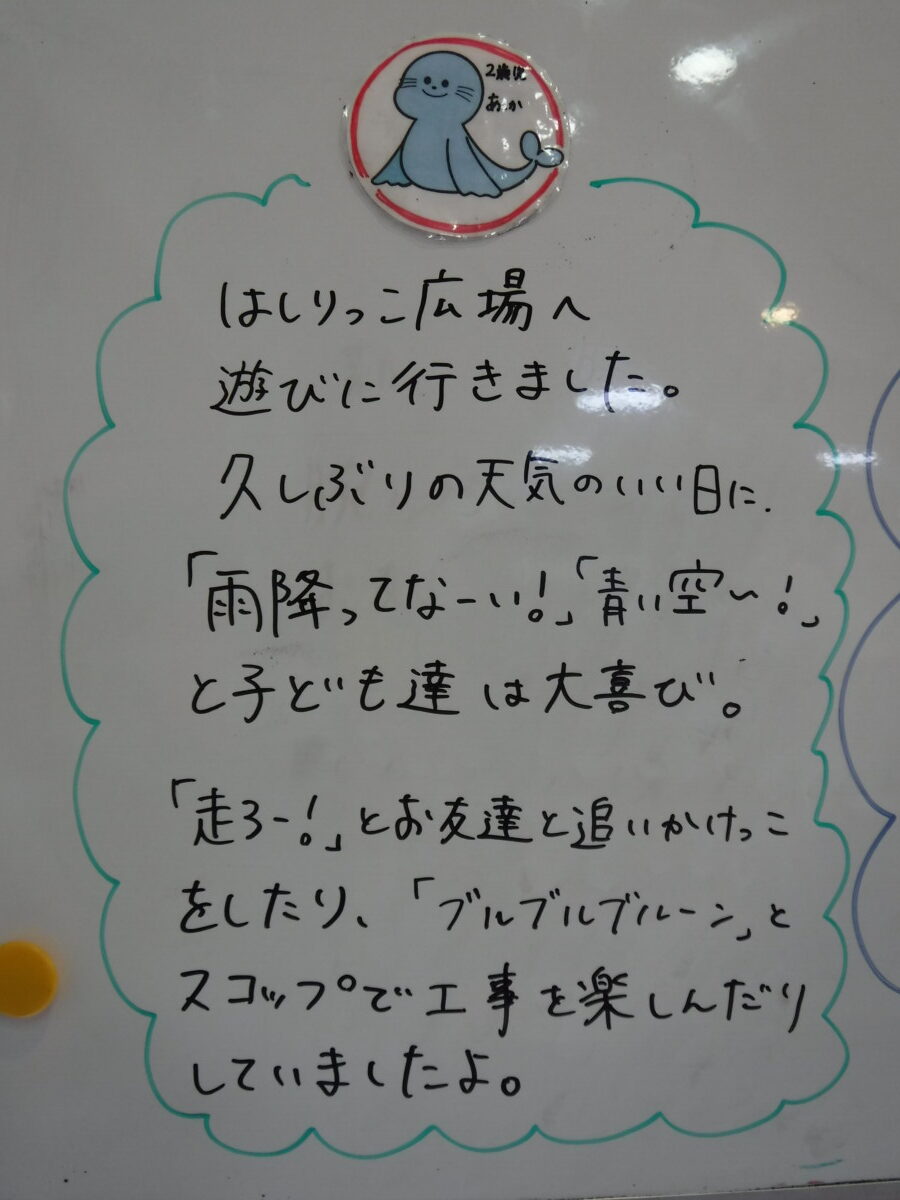 2歳児
はしりっこ広場へ
遊びに行きました。
久しぶりの天気のいい日に、
「雨降ってなーい!」「青い空〜!」
と子ども達は大喜び。
「走ろー!」とお友達と追いかけっこ
をしたり、「ブルブルブルーン」と
スコップで工事を楽しんだり
していましたよ。